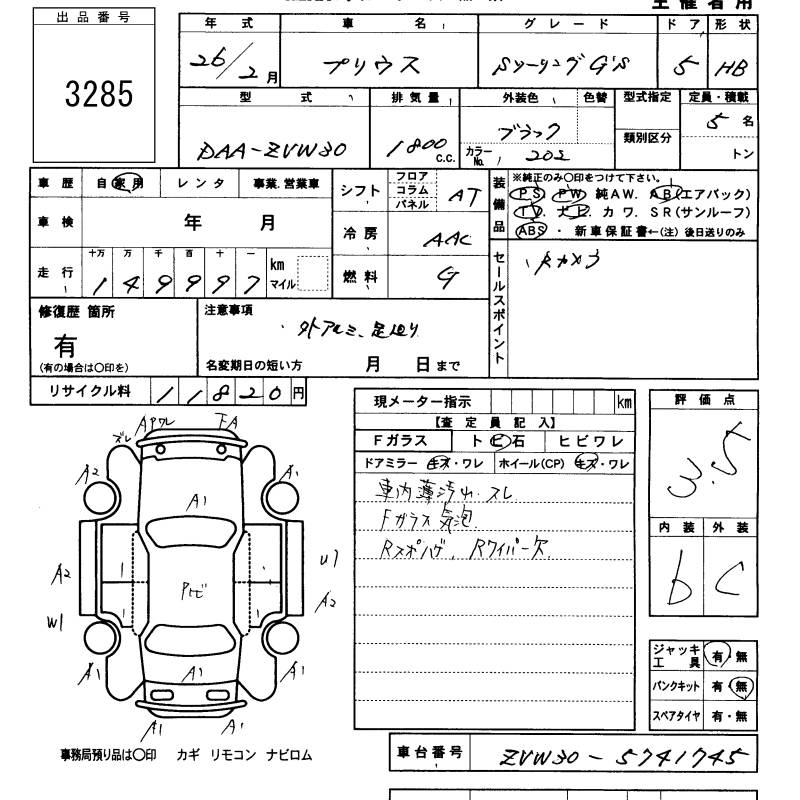 主催者用
出品番号
3285
年式 車名 グレード ドア 形状
26/2月 プリウス Sツーリング G's 5 HB
型式 排気量 外装色 色替 型式指定 定員・積載
DAA-ZVW30 1800 C.C. ブラック 類別区分 5名
カラーNo. 202 トン
車歴 自家用 レンタ 事業.営業車
シフト フロア コラム パネル AT
装備品 ※純正のみ〇印をつけて下さい。
PS PW 純AW. AB(エアバック)
TV. ナビ. カワ. SR(サンルーフ)
ABS ・ 新車保証書←(注) 後日送りのみ
車検 年 月
冷房 AAC
走行 十万 万 千 百 十 一
149997 km マイル
燃料 G
セールスポイント
・Rカメラ
修復歴 箇所
有
(有の場合は〇印を)
注意事項
・外アルミ、足廻り
名変期日の短い方 月 日まで
リサイクル料 11820円
現メーター指示 km
【査定員記入】
Fガラス トビ石 ヒビワレ
ドアミラー キズ・ワレ ホイール(CP) キズ・ワレ
車内薄汚れ.スレ
Fガラス気泡.
Rスポハゲ、Rワイパー欠.
評価点
3.5
内装 外装
b C
ジャッキ工具 有・無
パンクキット 有・無
スペアタイヤ 有・無
Aワレ
FA
ズレ
A2
A1
A1
A2
U1
Pトビ
A2
W1
A1
A1
A1
A1
A1
事務局預り品は〇印 カギ リモコン ナビロム
車台番号 ZVW30-5741745